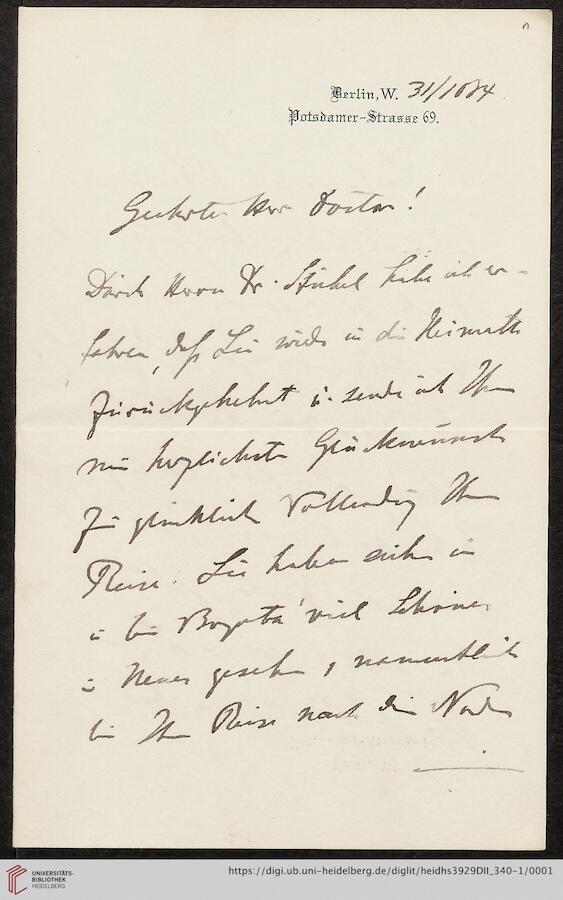 Berlin, W. 31/10 84
Potsdamer-Strasse 69.
Geehrter Herr Doctor!
Durch Herrn Dr. Stübel habe ich er-
fahren, daß Sie wieder in die Heimath
zurückgekehrt u. sende ich Ihnen
meine herzlichsten Glückwünsche
zur glücklichen Vollendung Ihrer
Reise. Sie haben sicher in
u. bei Bogotá viel Schönes
u. Neues gesehen, namentlich
bei Ihrer Reise nach dem Norden
UNIVERSITÄTS-
BIBLIOTHEK
HEIDELBERG
https://digi.ub.uni-heidelberg.de/diglit/heidhs3929DII_340-1/0001